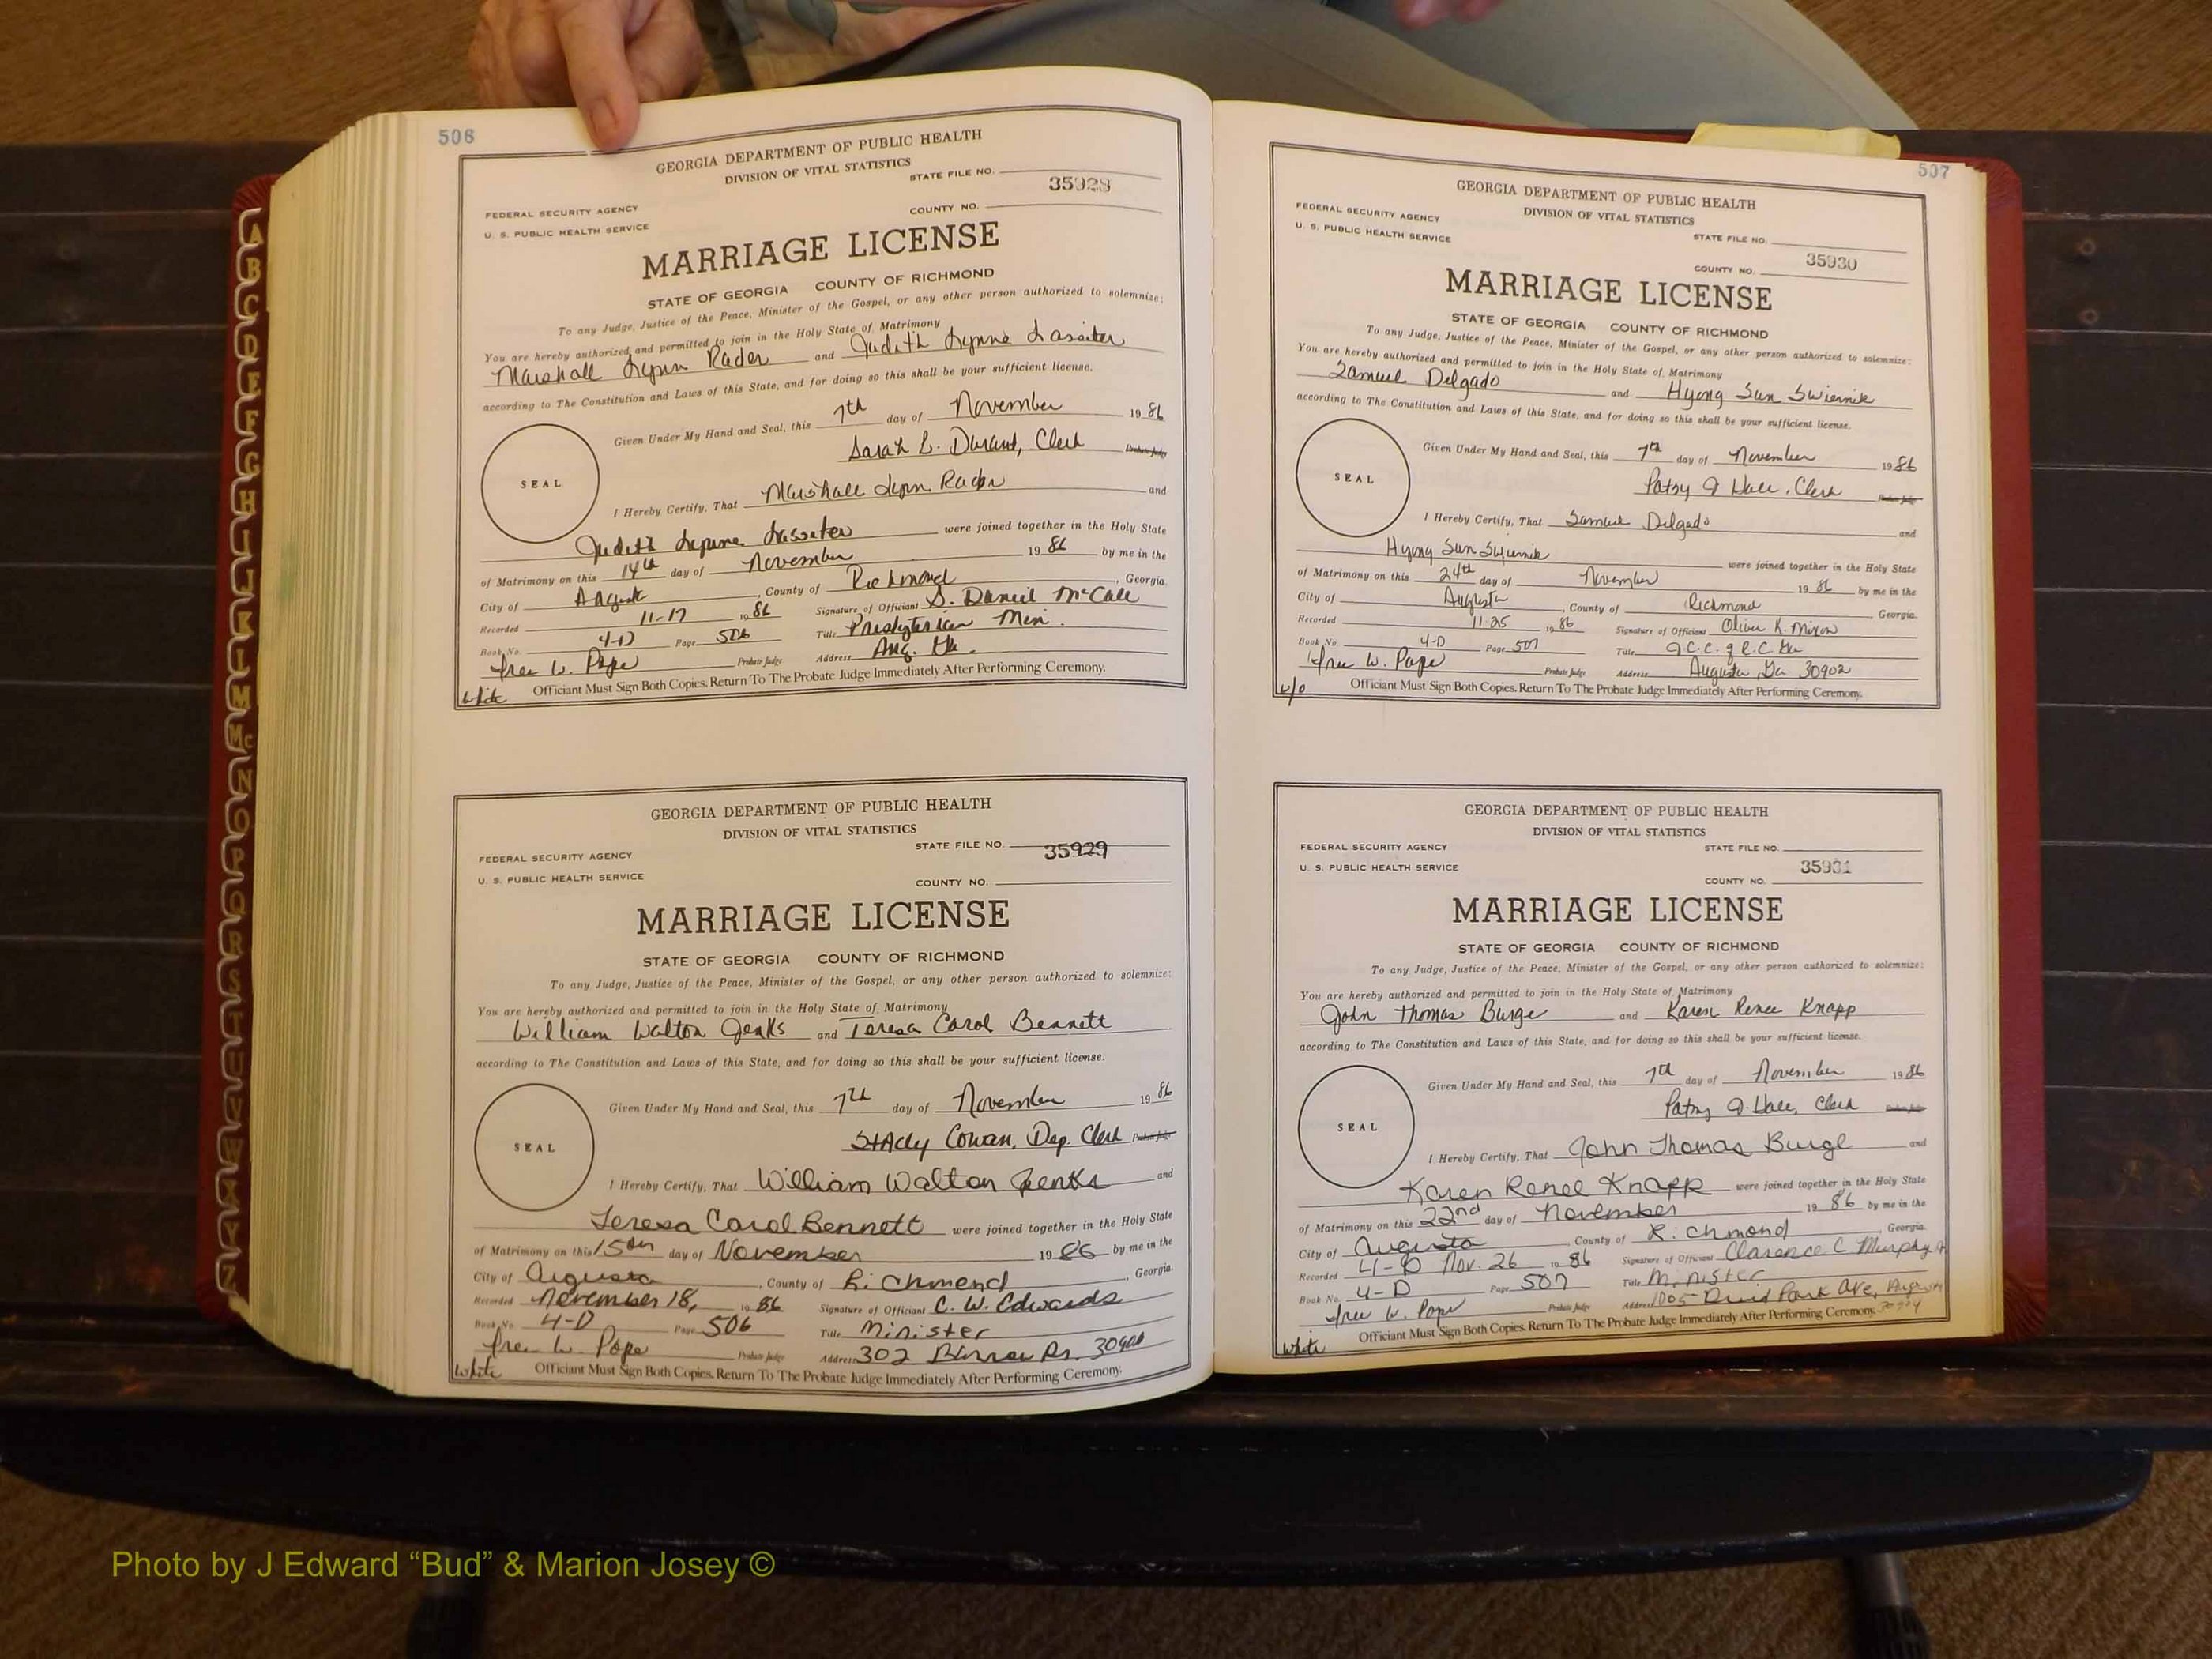 506
GEORGIA DEPARTMENT OF PUBLIC HEALTH
DIVISION OF VITAL STATISTICS
STATE FILE NO.
35928
FEDERAL SECURITY AGENCY
COUNTY NO.
U. S. PUBLIC HEALTH SERVICE
MARRIAGE LICENSE
STATE OF GEORGIA COUNTY OF RICHMOND
To any Judge, Justice of the Peace, Minister of the Gospel, or any other person authorized to solemnize:
You are hereby authorized and permitted to join in the Holy State of Matrimony
Marshall Lynn Rader and Judith Lynne Lassiter
according to The Constitution and Laws of this State, and for doing so this shall be your sufficient license.
Given Under My Hand and Seal, this 7th day of November 19 86
Sarah L. Durand, Clerk Probate Judge
SEAL
I Hereby Certify, That Marshall Lynn Rader and
Judith Lynne Lassiter were joined together in the Holy State
of Matrimony on this 14th day of November 19 86 by me in the
City of August, County of Richmond, Georgia.
Recorded 11-17 19 86 Signature of Officiant S. Daniel McCall
Book No. 4-D Page 506 Title Presbyterian Min.
Free W. Pope Probate Judge Address Aug. Ga.
White Officiant Must Sign Both Copies. Return To The Probate Judge Immediately After Performing Ceremony.
GEORGIA DEPARTMENT OF PUBLIC HEALTH
DIVISION OF VITAL STATISTICS
STATE FILE NO. 35929
FEDERAL SECURITY AGENCY
U. S. PUBLIC HEALTH SERVICE
COUNTY NO.
MARRIAGE LICENSE
STATE OF GEORGIA COUNTY OF RICHMOND
To any Judge, Justice of the Peace, Minister of the Gospel, or any other person authorized to solemnize:
You are hereby authorized and permitted to join in the Holy State of Matrimony
William Walton Jenks and Teresa Carol Bennett
according to The Constitution and Laws of this State, and for doing so this shall be your sufficient license.
Given Under My Hand and Seal, this 7th day of November 19 86
Stacly Cowan, Dep. Clerk Probate Judge
SEAL
I Hereby Certify, That William Walton Jenks and
Teresa Carol Bennett were joined together in the Holy State
of Matrimony on this 15th day of November 19 86 by me in the
City of Augusta, County of Richmond, Georgia.
Recorded November 18, 19 86 Signature of Officiant C. W. Edwards
Book No. 4-D Page 506 Title Minister
Free W. Pope Probate Judge Address 302
White Officiant Must Sign Both Copies. Return To The Probate Judge Immediately After Performing Ceremony.
507
GEORGIA DEPARTMENT OF PUBLIC HEALTH
DIVISION OF VITAL STATISTICS
FEDERAL SECURITY AGENCY
U. S. PUBLIC HEALTH SERVICE
STATE FILE NO.
35930
COUNTY NO.
MARRIAGE LICENSE
STATE OF GEORGIA COUNTY OF RICHMOND
To any Judge, Justice of the Peace, Minister of the Gospel, or any other person authorized to solemnize:
You are hereby authorized and permitted to join in the Holy State of Matrimony
Samuel Delgado and Hyong Sun Swiernik
according to The Constitution and Laws of this State, and for doing so this shall be your sufficient license.
Given Under My Hand and Seal, this 7th day of November 19 86
Patsy J Hall, Clerk Probate Judge
SEAL
I Hereby Certify, That Samuel Delgado and
Hyong Sun Swiernik were joined together in the Holy State
of Matrimony on this 24th day of November 19 86 by me in the
City of Augusta, County of Richmond Georgia.
Recorded 11-25 19 86 Signature of Officiant Oliver K. Mixon
Book No. 4-D Page 507 Title J.C.C. of R.C. Ga
Free W. Pope Probate Judge Address Augusta, Ga 30902
w/o Officiant Must Sign Both Copies. Return To The Probate Judge Immediately After Performing Ceremony.
GEORGIA DEPARTMENT OF PUBLIC HEALTH
DIVISION OF VITAL STATISTICS
FEDERAL SECURITY AGENCY
STATE FILE NO.
U. S. PUBLIC HEALTH SERVICE
35931
COUNTY NO.
MARRIAGE LICENSE
STATE OF GEORGIA COUNTY OF RICHMOND
To any Judge, Justice of the Peace, Minister of the Gospel, or any other person authorized to solemnize:
You are hereby authorized and permitted to join in the Holy State of Matrimony
John Thomas Burge and Karen Renee Knapp
according to The Constitution and Laws of this State, and for doing so this shall be your sufficient license.
Given Under My Hand and Seal, this 7th day of November 19 86
Patsy J. Hall, Clerk Probate Judge
SEAL
I Hereby Certify, That John Thomas Burge and
Karen Renee Knapp were joined together in the Holy State
of Matrimony on this 22nd day of November 19 86 by me in the
City of Augusta, County of Richmond, Georgia.
Recorded 4-D Nov. 26 19 86 Signature of Officiant Clarence C Murphy Jr
Book No. 4-D Page 507 Title Minister
Free W. Pope Probate Judge Address 1005 Druid Park Ave, Augusta 30904
White Officiant Must Sign Both Copies. Return To The Probate Judge Immediately After Performing Ceremony.
A
B
C
D
E
F
G
H
I
J
K
L
M
Mc
N
O
P
Q
R
S
T
U
V
W
X
Y
Z
Photo by J Edward “Bud” & Marion Josey ©